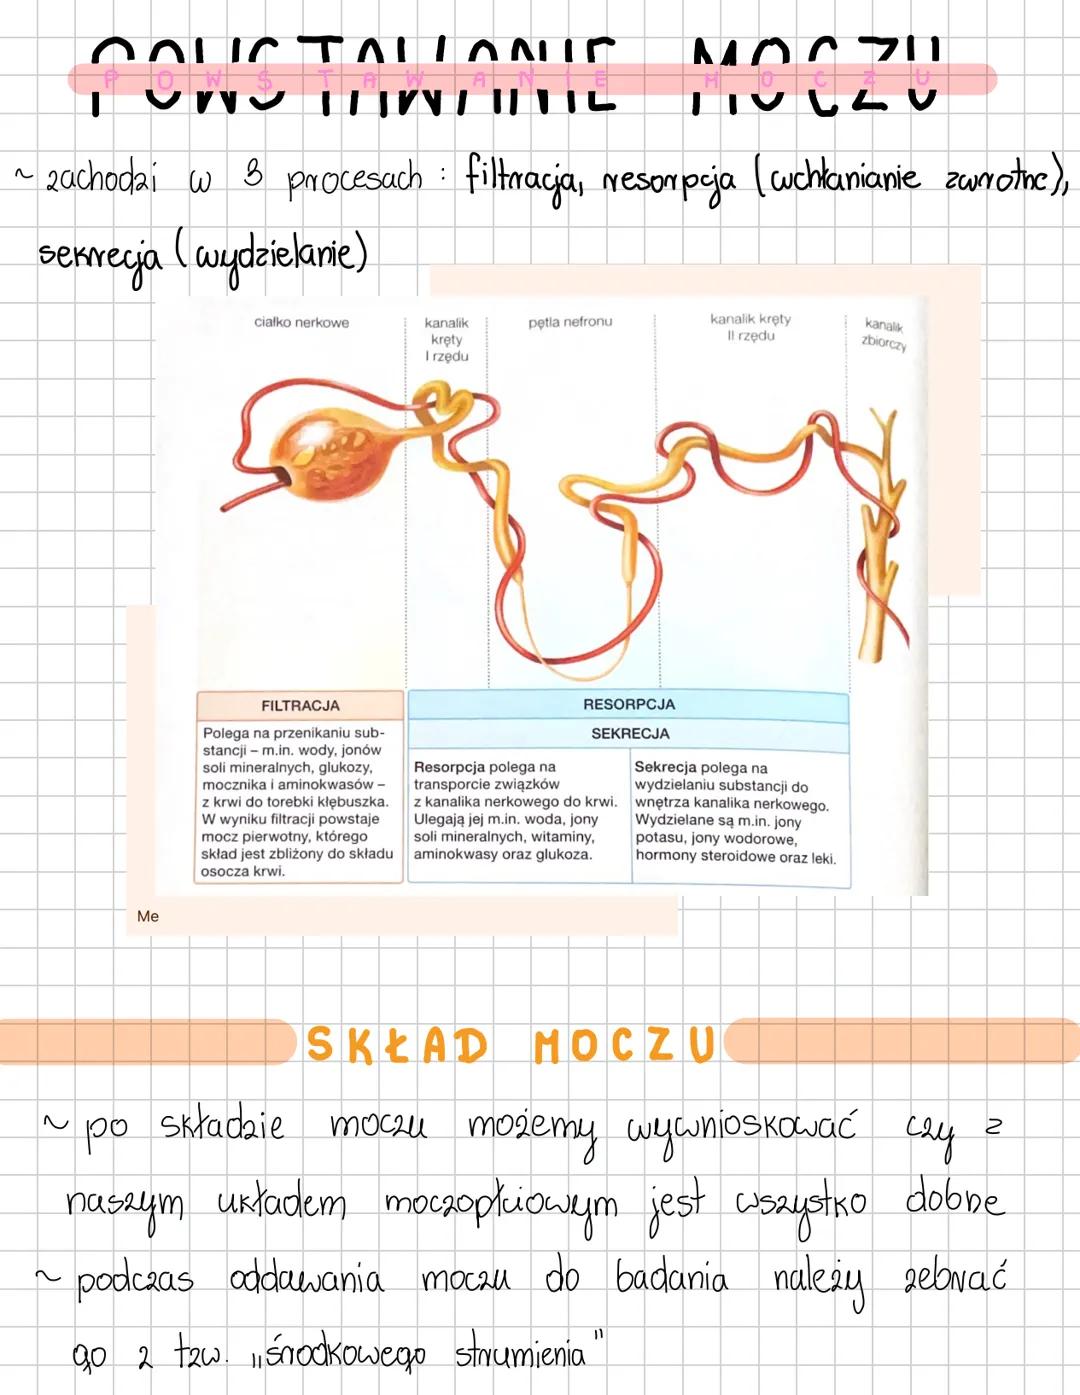 POWSTAWANIE MOCZU
POWSTAWANIE MOCZU
~ zachodzi w 3 procesach : filtracja, resorpcja (wchłanianie zwrotne),
sekrecja (wydzielanie)
ciałko nerkowe
kanalik
kręty
I rzędu
pętla nefronu
kanalik kręty
II rzędu
kanalik
zbiorczy
FILTRACJA
Polega na przenikaniu sub-
stancji – m.in. wody, jonów
soli mineralnych, glukozy,
mocznika i aminokwasów –
z krwi do torebki kłębuszka.
W wyniku filtracji powstaje
mocz pierwotny, którego
skład jest zbliżony do składu
osocza krwi.
RESORPCJA
SEKRECJA
Resorpcja polega na
transporcie związków
z kanalika nerkowego do krwi.
Ulegają jej m.in. woda, jony
soli mineralnych, witaminy,
aminokwasy oraz glukoza.
Sekrecja polega na
wydzielaniu substancji do
wnętrza kanalika nerkowego.
Wydzielane są m.in. jony
potasu, jony wodorowe,
hormony steroidowe oraz leki.
Me
SKŁAD MOCZU
~ po składzie moczu możemy wywnioskować czy z
naszym układem moczopłciowym jest wszystko dobrze
~ podczas oddawania moczu do badania należy zebrać
go z tzw. „środkowego strumienia"